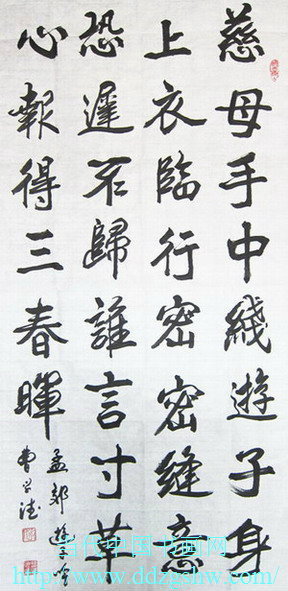 慈母手中綫遊子身
上衣臨行密密縫意
恐遲不歸誰言寸草
心報得三春暉
孟郊遊子吟
当代中国书画网
http://www.ddzgshw.com/